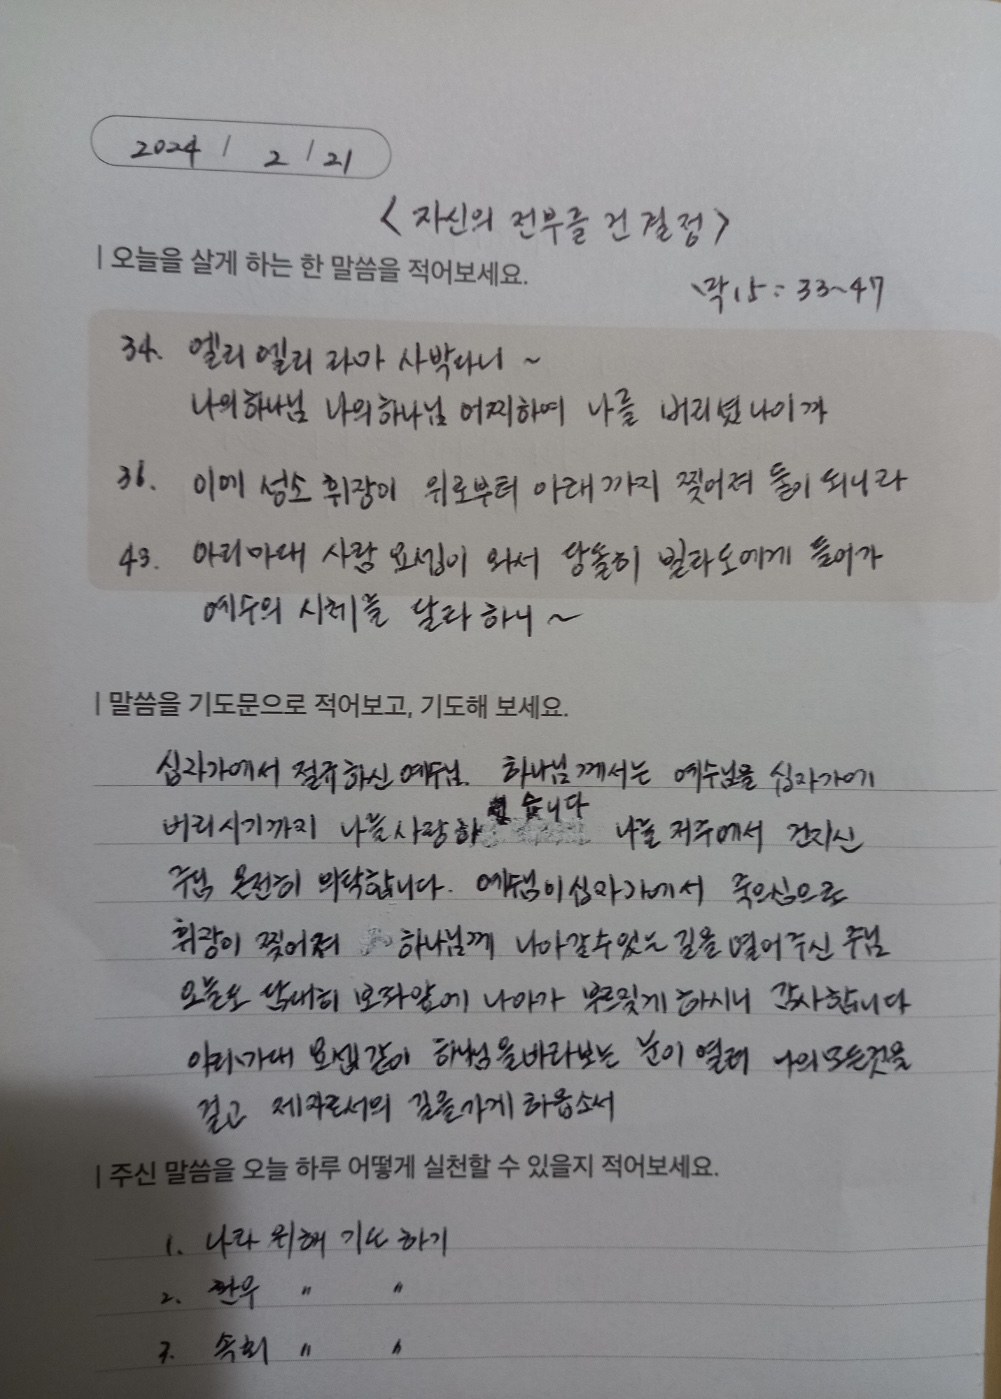 2024 / 2 / 21
<자신의 전부를 건 결정>
| 오늘을 살게 하는 한 말씀을 적어보세요.
막 15 : 33~47
34. 엘리 엘리 라마 사박다니 ~
나의 하나님 나의 하나님 어찌하여 나를 버리셨나이까
36. 이에 성소 휘장이 위로부터 아래까지 찢어져 둘이 되니라
43. 아리마대 사람 요셉이 와서 당돌히 빌라도에게 들어가
예수의 시체를 달라 하니 ~
| 말씀을 기도문으로 적어보고, 기도해 보세요.
십자가에서 절규하신 예수님. 하나님께서는 예수님을 십자가에
버리시기까지 나를 사랑하셨습니다 나를 저주에서 건지신
주님 온전히 의탁합니다. 예수님이 십자가에서 죽으심으로
휘장이 찢어져 하나님께 나아갈 수 있는 길을 열어 주신 주님
오늘도 담대히 보좌앞에 나아가 부르짖게 하시니 감사합니다
아리마대 요셉같이 하나님을 바라보는 눈이 열려 나의 모든것을
걸고 제자로서의 길을 가게 하옵소서
| 주신 말씀을 오늘 하루 어떻게 실천할 수 있을지 적어보세요.
1. 나라 위해 기도 하기
2. 환우 " "
3. 속회 " "